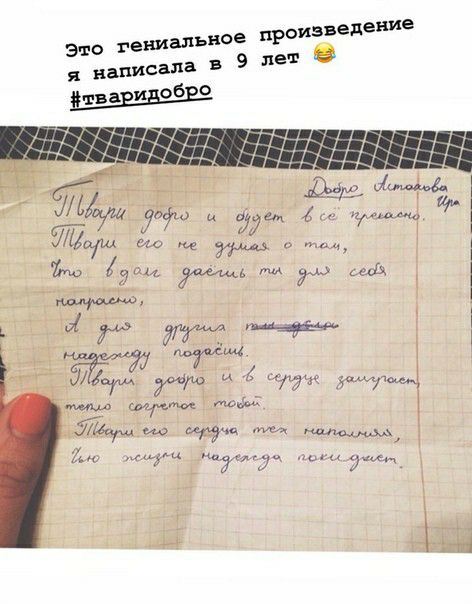 Это гениальное произведение
я написала в 9 лет 😂
#тваридобро
Добро Астахова
Ира
Твари добро и будет всё прекасно.
Твари его не думая о том,
Что в долг даёшь ты для себя
напрасно,
А для других
надежду подаёшь.
Твари добро и в сердце заиграет,
тепло согретое тобой.
Твари его сердца тех наполняя,
Чью жизнь надежда покидает.